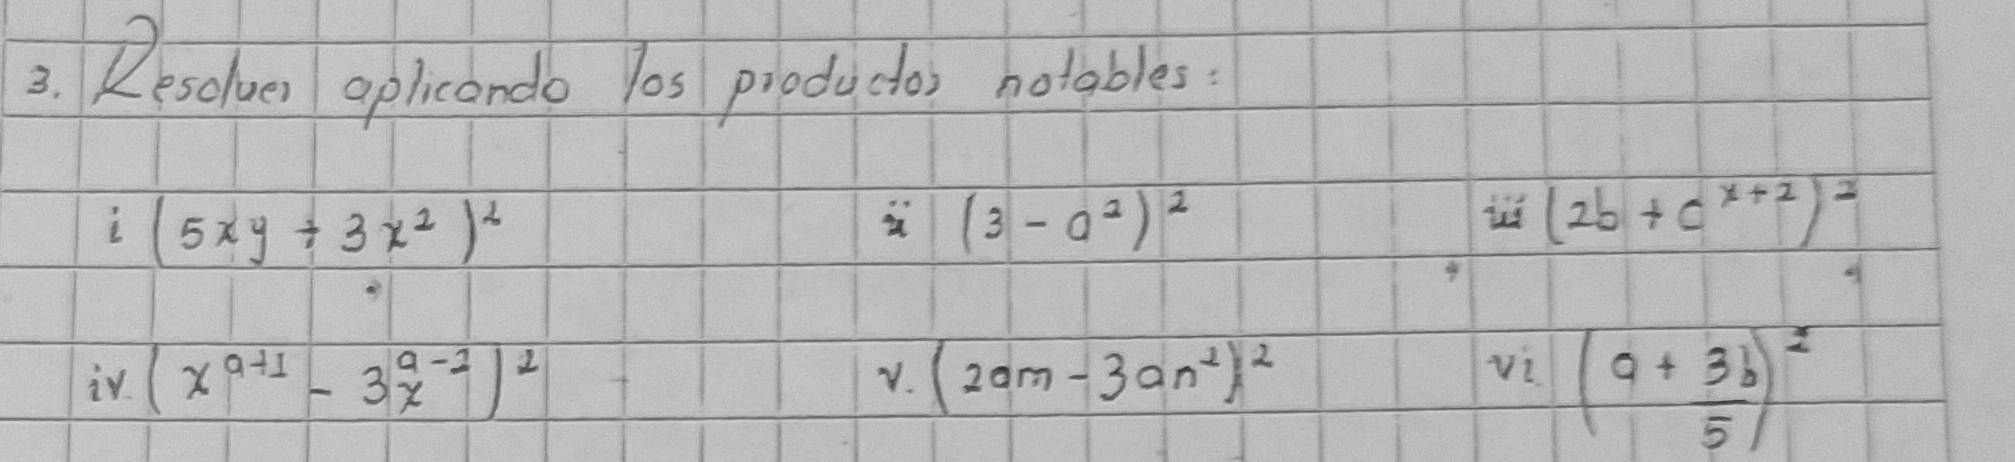 3. Resolver aplicando los productos notables:
i (5xy + 3x²)² ii (3 - a²)² iii (2b + a^{x+2})²
iv. (x^{a+1} - 3x^{a-2})² v. (2am - 3an²)² vi (a + 3b/5)²